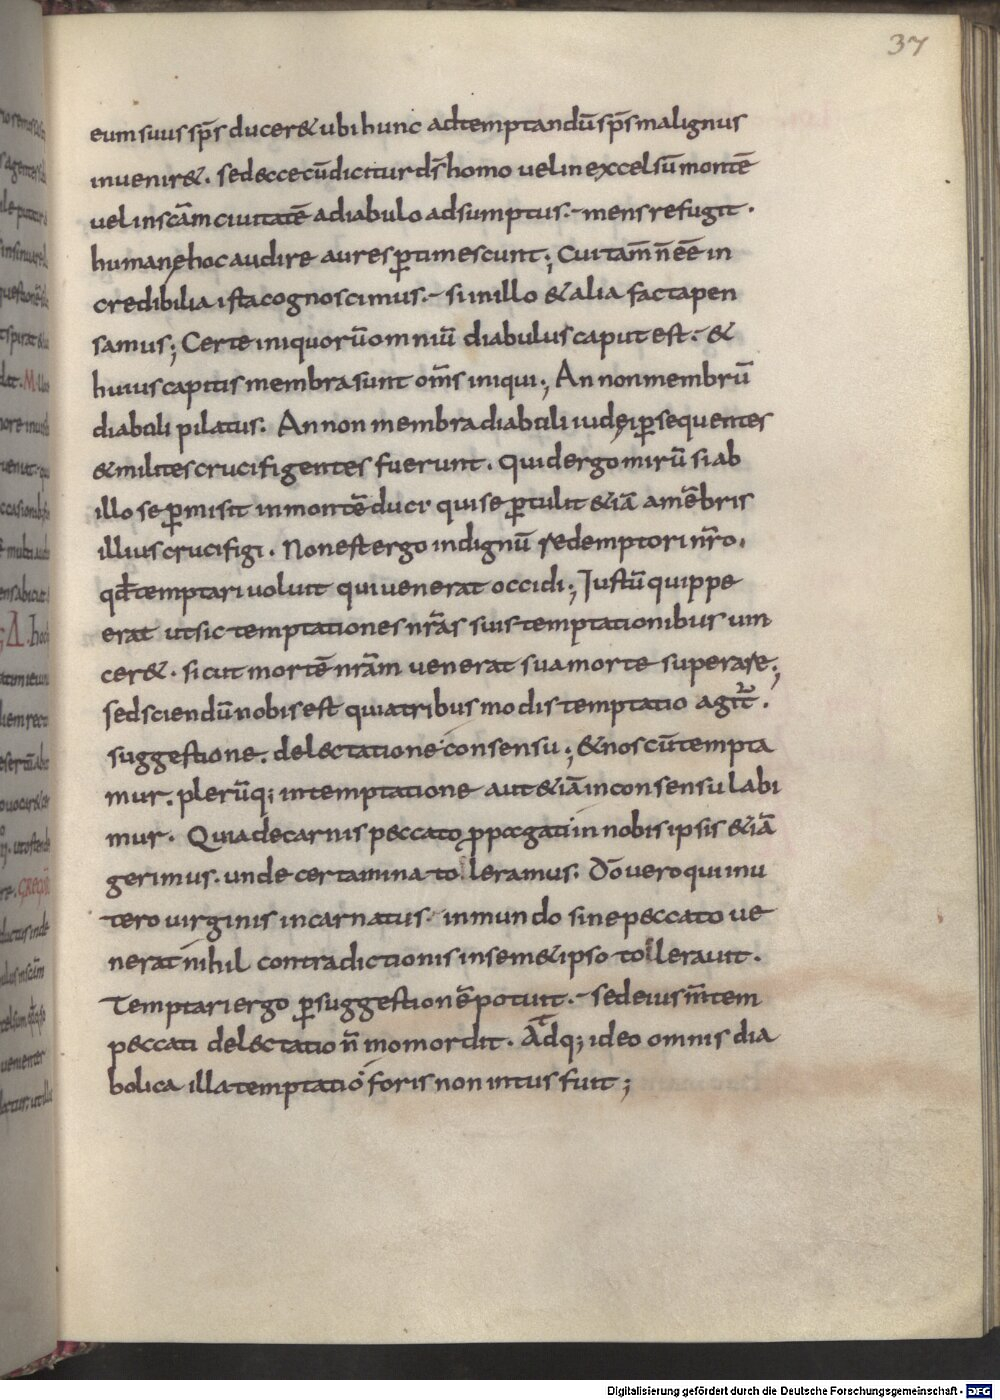 37
eum suus sp̄s ducer& ubi hunc ad temptandū sp̄s malignus
inuenir&. sed ecce cū dicitur d̄s homo uel in excelsū montē
uel in sc̄am ciuitatē a diabulo adsumptus.- mens refugit.
humanę hoc audire aures p̄timescunt; Cui tam̄ n̄ eē in
credibilia ista cognoscimus.- si in illo & alia facta pen
samus; Certe iniquorū omniū diabulus caput est.- &
huius capitis membra sunt om̄s iniqui; An non membrū
diabuli pilatus. An non membra diabuli iudęi p̄sequentes
& milites crucifigentes fuerunt. Quid ergo mirū si ab
illo se p̄misit in montē duci qui se p̄tulit &iā a mēbris
illius crucifigi. Non est ergo indignū redemptori nr̄o.
qđ temptari uoluit qui uenerat occidi; Iustū quippe
erat ut sic temptationes nr̄as suis temptationibus uin
cer&. sicut mortē nr̄am uenerat sua morte superare;
sed sciendū nobis est quia tribus modis temptatio agit̄.
suggestione. delectatione consensu; & nos cū tempta
mur. plerūq; in temptatione aut &iā in consensu labi
mur. Quia de carnis peccato p̱pagati in nobis ipsis &iā
gerimus. unde certamina tolleramus. Dō uero qui in u
tero uirginis incarnatus. in mundo sine peccato ue
nerat nihil contradictionis in sem&ipso tollerauit.
Temptari ergo p̄ suggestionē potuit.- sed eius m̄tem
peccati delectatio n̄ momordit. Adq; ideo omnis dia
bolica illa temptatio foris non intus fuit;
Digitalisierung gefördert durch die Deutsche Forschungsgemeinschaft - DFG